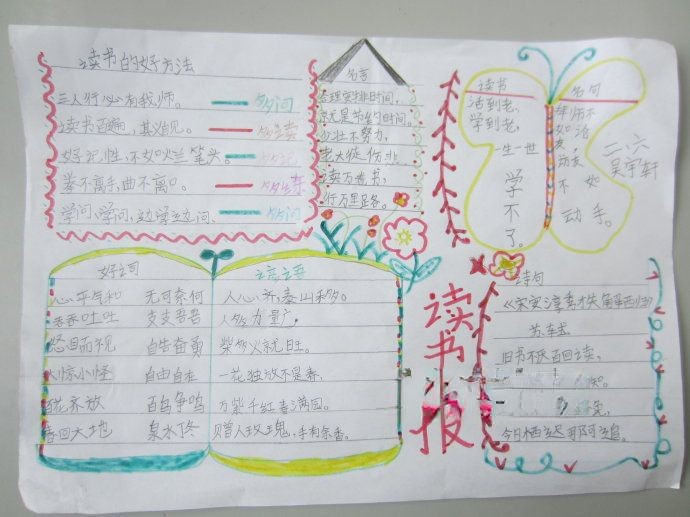 读书的好方法
三人行必有我师。 多问
读书百遍，其义自见。 多读
好记性，不如烂笔头。 多记
拳不离手，曲不离口。 多练
学问，学问，边学边问。 多问
名言
合理安排时间，
就是节约时间。
少壮不努力，
老大徒伤悲
读万卷书，
行万里路。
读书
活到老，
学到老，
一生一世
学
不
了。
名句
拜师不
如访
友，访友
不如
动手。
二.六
吴宇轩
好词
心平气和 无可奈何
吞吞吐吐 支支吾吾
怒目而视 自告奋勇
大惊小怪 自由自在
百花齐放 百鸟争鸣
春回大地 泉水咚
谚语
人心齐，泰山移。
人多力量大，
柴多火就旺。
一花独放不是春，
万紫千红春满园。
赠人玫瑰，手有余香。
读书报
诗句
苏轼
旧书不厌百回读，
今日栖迟那可追。